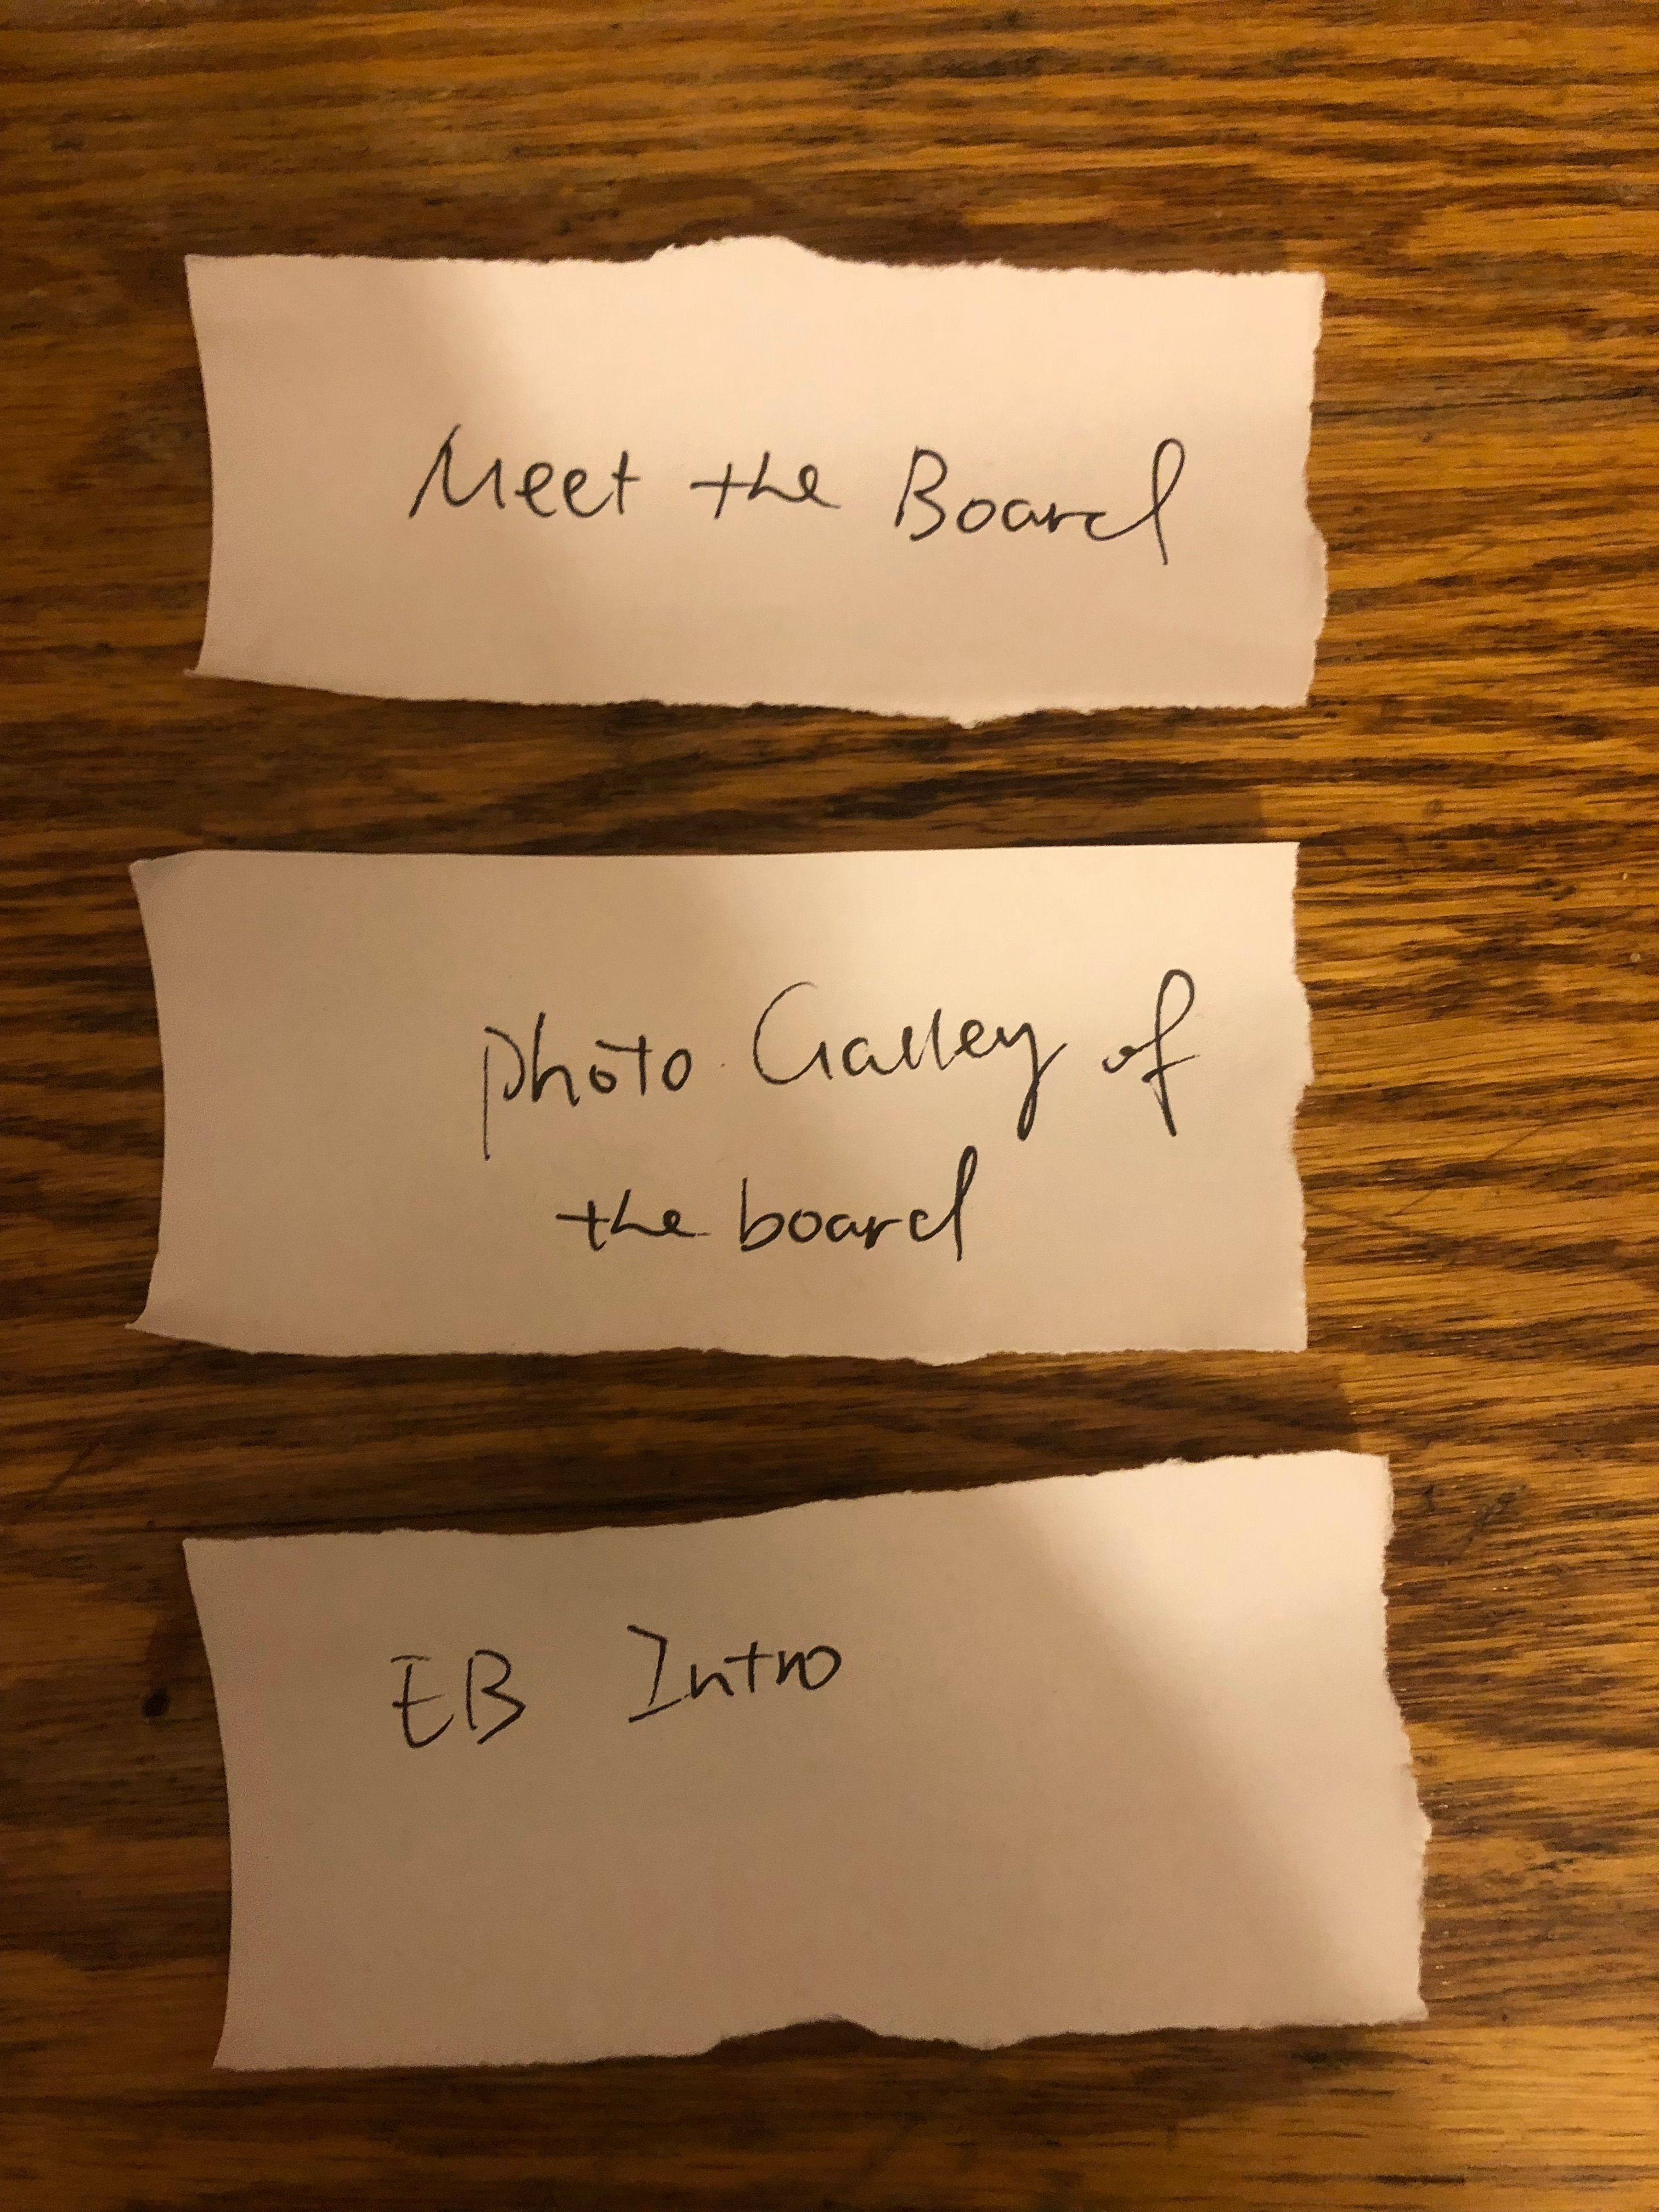 Meet the Board
photo Galley of
the board
EB Intro